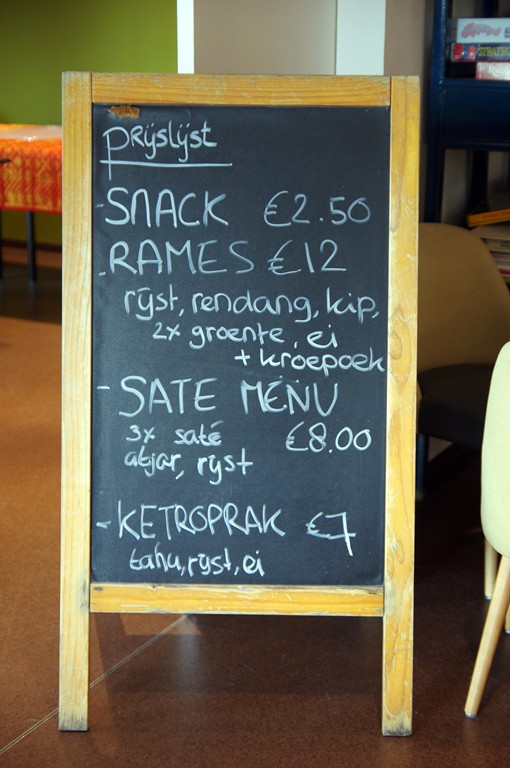 prijslijst
- SNACK €2.50
- RAMES €12
rijst, rendang, kip,
2x groente, ei
+ kroepoek
- SATE MENU
3x saté €8.00
atjar, rijst
- KETROPRAK €7
tahu, rijst, ei
STRATEGO